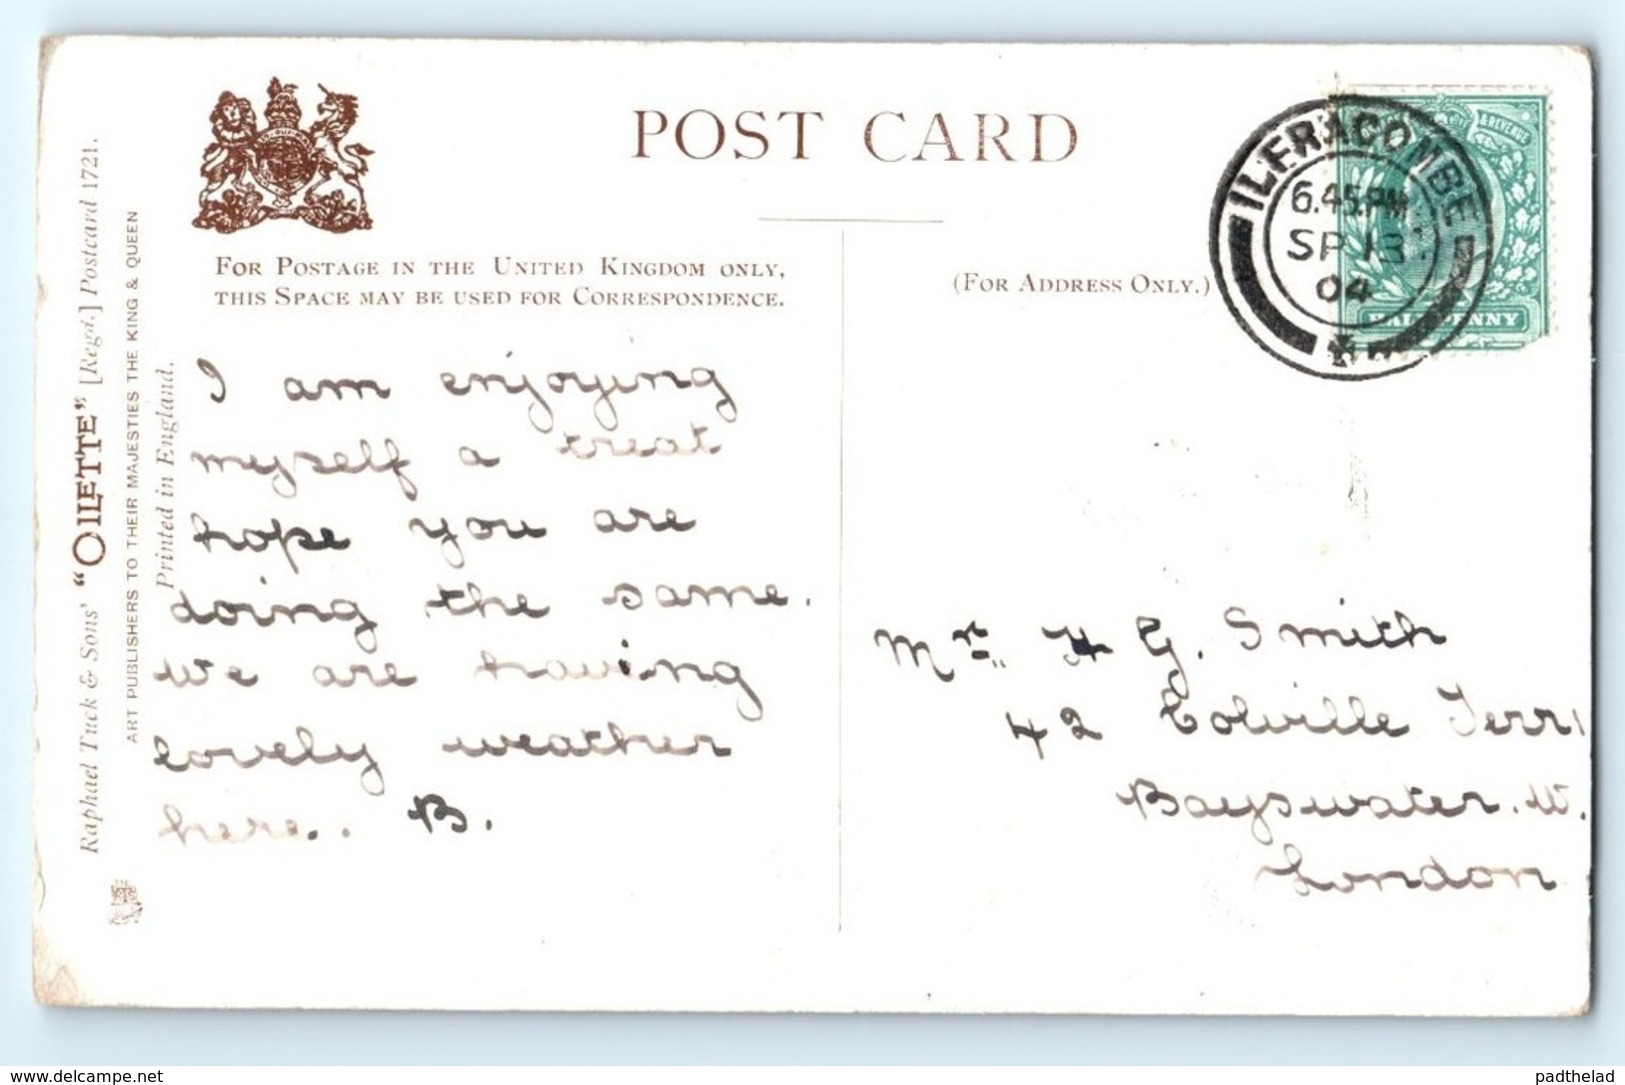 Raphael Tuck & Sons' "OILETTE" [Regd.] Postcard 1721.
ART PUBLISHERS TO THEIR MAJESTIES THE KING & QUEEN
Printed in England.
POST CARD
FOR POSTAGE IN THE UNITED KINGDOM ONLY,
THIS SPACE MAY BE USED FOR CORRESPONDENCE.
(FOR ADDRESS ONLY.)
ILFRACOMBE
6.45.PM
SP 13
04
& REVENUE
HALFPENNY
I am enjoying
myself a treat
hope you are
doing the same.
We are having
lovely weather
here.. B.
Mr. H G. Smith
42 Colville Terr
Bayswater. W.
London
delcampe.net
padthelad